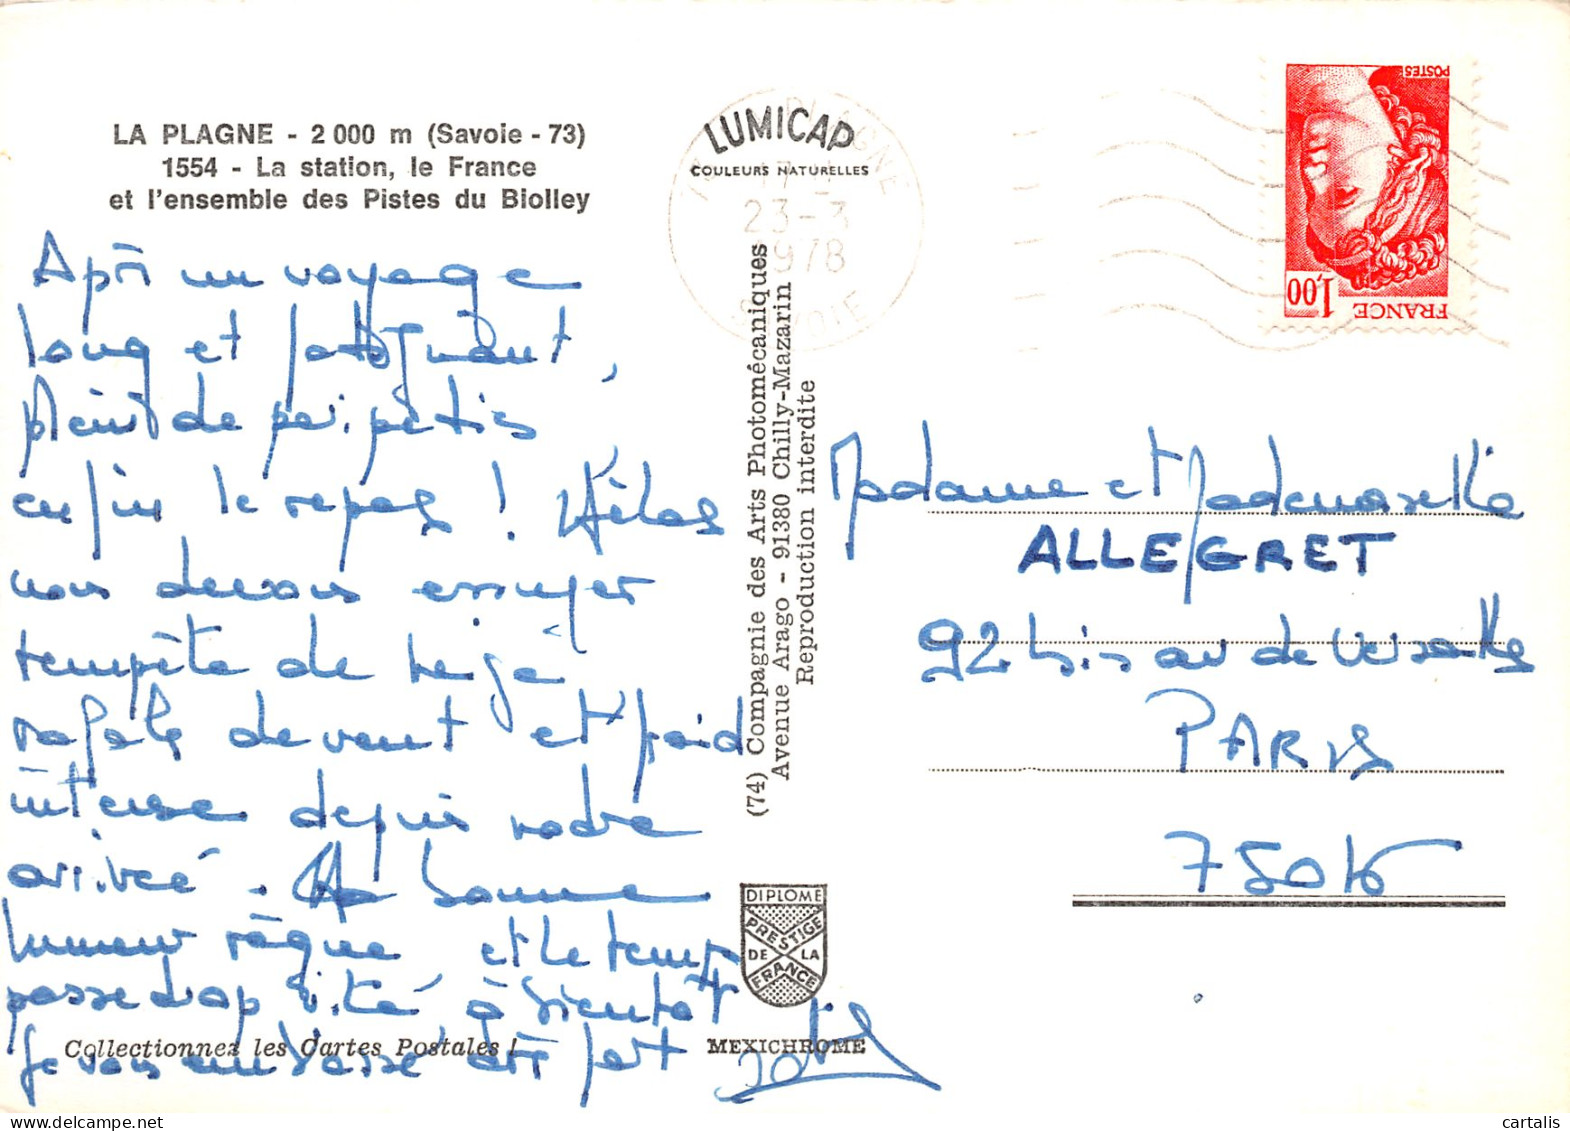 LA PLAGNE - 2 000 m (Savoie - 73)
1554 - La station, le France
et l'ensemble des Pistes du Biolley
Après un voyage
long et fatiguant,
plein de péripéties
enfin le repos ! Hélas
nous devons essuyer
tempête de neige
rafale de vent et froid
intense depuis notre
arrivée. La bonne
humeur règne et le temps
passe trop vite à bientôt
Je vous embrasse très fort
Collectionnez les Cartes Postales !
LUMICAP
COULEURS NATURELLES
LA PLAGNE
17 -
23-3
1978
SAVOIE
(74) Compagnie des Arts Photomécaniques
Avenue Arago - 91380 Chilly-Mazarin
Reproduction interdite
DIPLOME
PRESTIGE
DE LA
FRANCE
MEXICHROME
POSTES
1,00
FRANCE
Madame et Mademoiselle
ALLEGRET
92 bis av de Versailles
PARIS
75016
cartalis